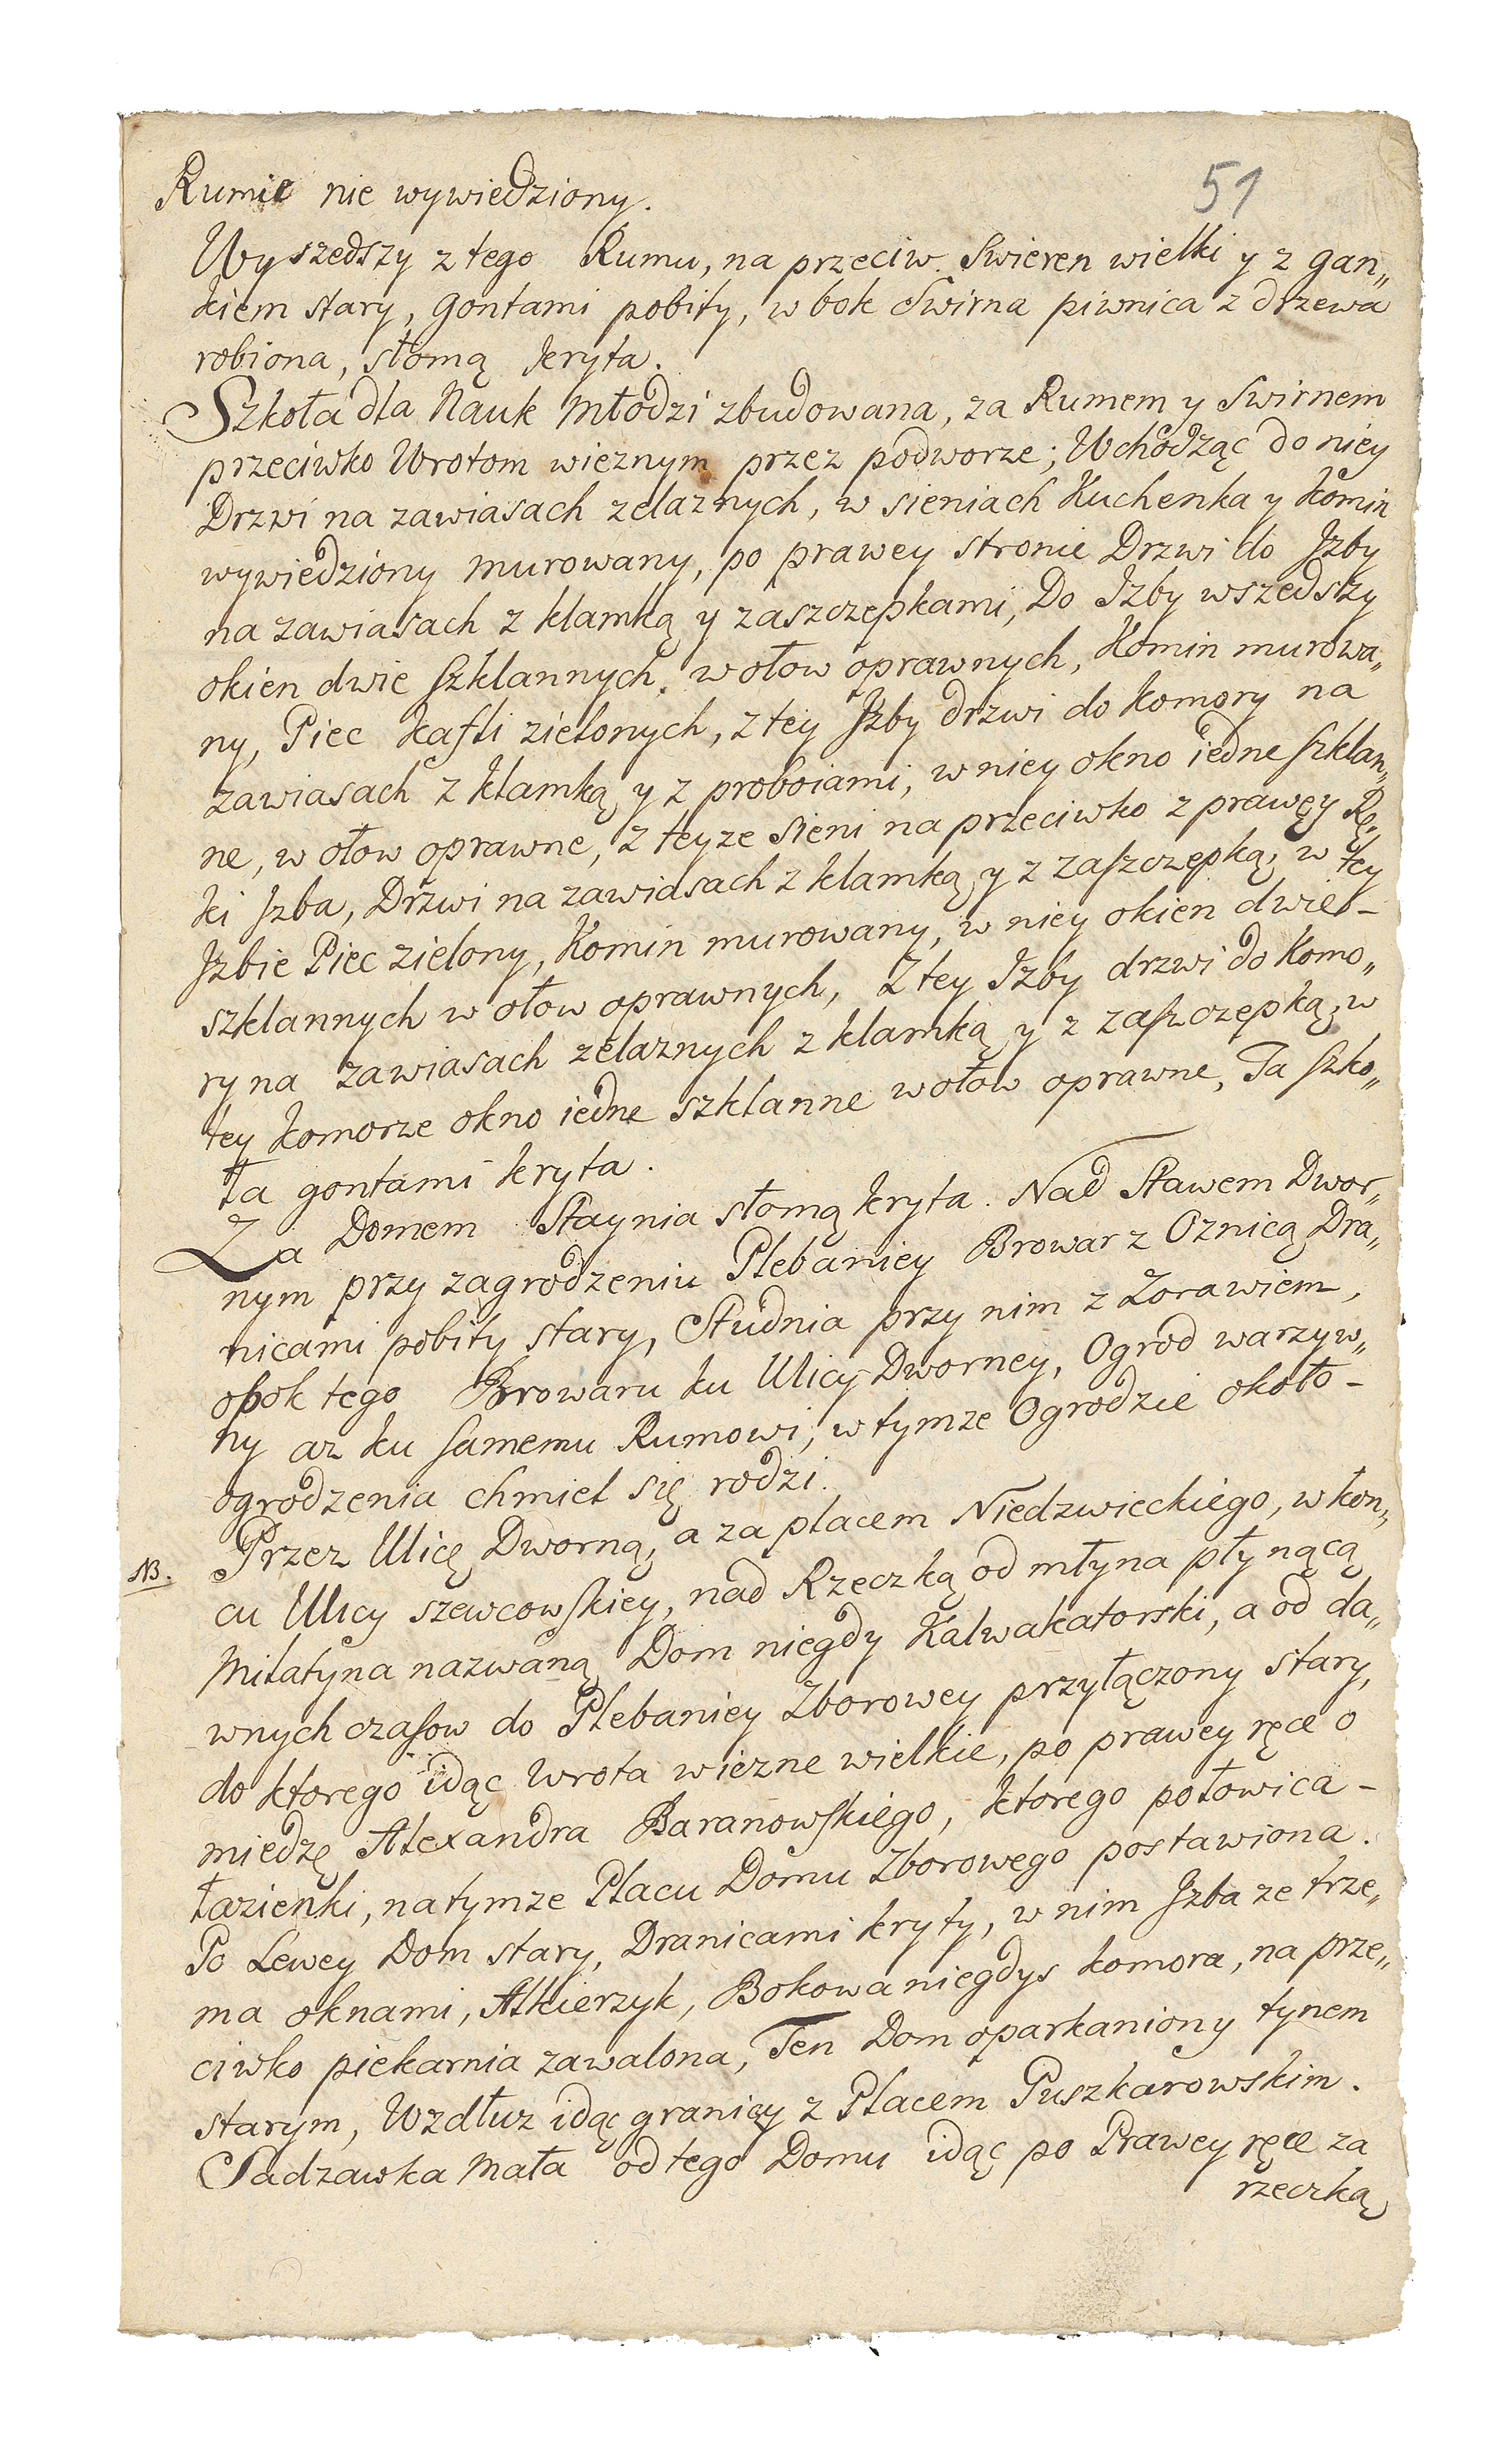 51
Rumie nie wywiedziony.
Wyszedszy z tego Rumu, na przeciw Swieren wielki y z gan„
kiem stary, gontami pobity, w bok Swirna piwnica z drzewa
robiona, słomą kryta.
Szkoła dla Nauk Młodzi zbudowana, za Rumem y Swirnem
przeciwko Wrotom wieznym przez podworze; Wchodząc do niey
Drzwi na zawiasach zelaznych, w sieniach Kuchenka y komin
wywiedziony murowany, po prawey stronie Drzwi do Jzby
na zawiasach z klamką y zaszczepkami, Do Jzby wszedszy
okien dwie szklannych, w ołow oprawnych, Komin murowa„
ny, Piec kafli zielonych, z tey Jzby drzwi do komory na
zawiasach z klamką y z proboiami, w niey okno iedne szklan„
ne, w ołow oprawne, z teyze sieni na przeciwko z prawęy Rę„
ki Jzba, Drzwi na zawiasach z klamką y z zaszczepką, w tey
Jzbie Piec zielony, Komin murowany, w niey okien dwie -
szklannych w ołow oprawnych, Z tey Jzby drzwi do Komo„
ry na zawiasach zelaznych z klamką y z zaszczepką, w
tey komorze okno iedne szklanne w ołow oprawne, Ta szko„
ła gontami kryta.
Za Domem Staynia słomą kryta. Nad Stawem Dwor„
nym przy zagrodzeniu Plebaniey Browar z Oznicą Dra„
nicami pobity stary, Studnia przy nim z Zorawiem,
obok tego Browaru ku Ulicy Dworney, Ogrod warzyw„
ny az ku samemu Rumowi, w tymze Ogrodzie około -
ogrodzenia chmiel się rodzi.
NB. Przez Ulicę Dworną, a za placem Niedzwieckiego, w kon„
cu Ulicy szewcowskiey, nad Rzeczką od młyna płynącą
Milatyna nazwaną Dom niegdy Kalwakatorski, a od da„
wnych czasow do Plebaniey Zborowey przyłączony stary,
do ktorego idąc Wrota wiezne wielkie, po prawey ręce o
miedzę Alexandra Baranowskiego, ktorego połowica -
łazienki, na tymze Placu Domu Zborowego postawiona.
Po Lewey Dom stary, Dranicami kryty, w nim Jzba ze trze„
ma oknami, Alkierzyk, Bokowa niegdys komora, na prze„
ciwko piekarnia zawalona, Ten Dom oparkaniony tynem
starym, Wzdłuz idąc granicy z Placem Puszkarowskim.
Sadzawka Mała od tego Domu idąc po Prawey ręce za
rzeczką